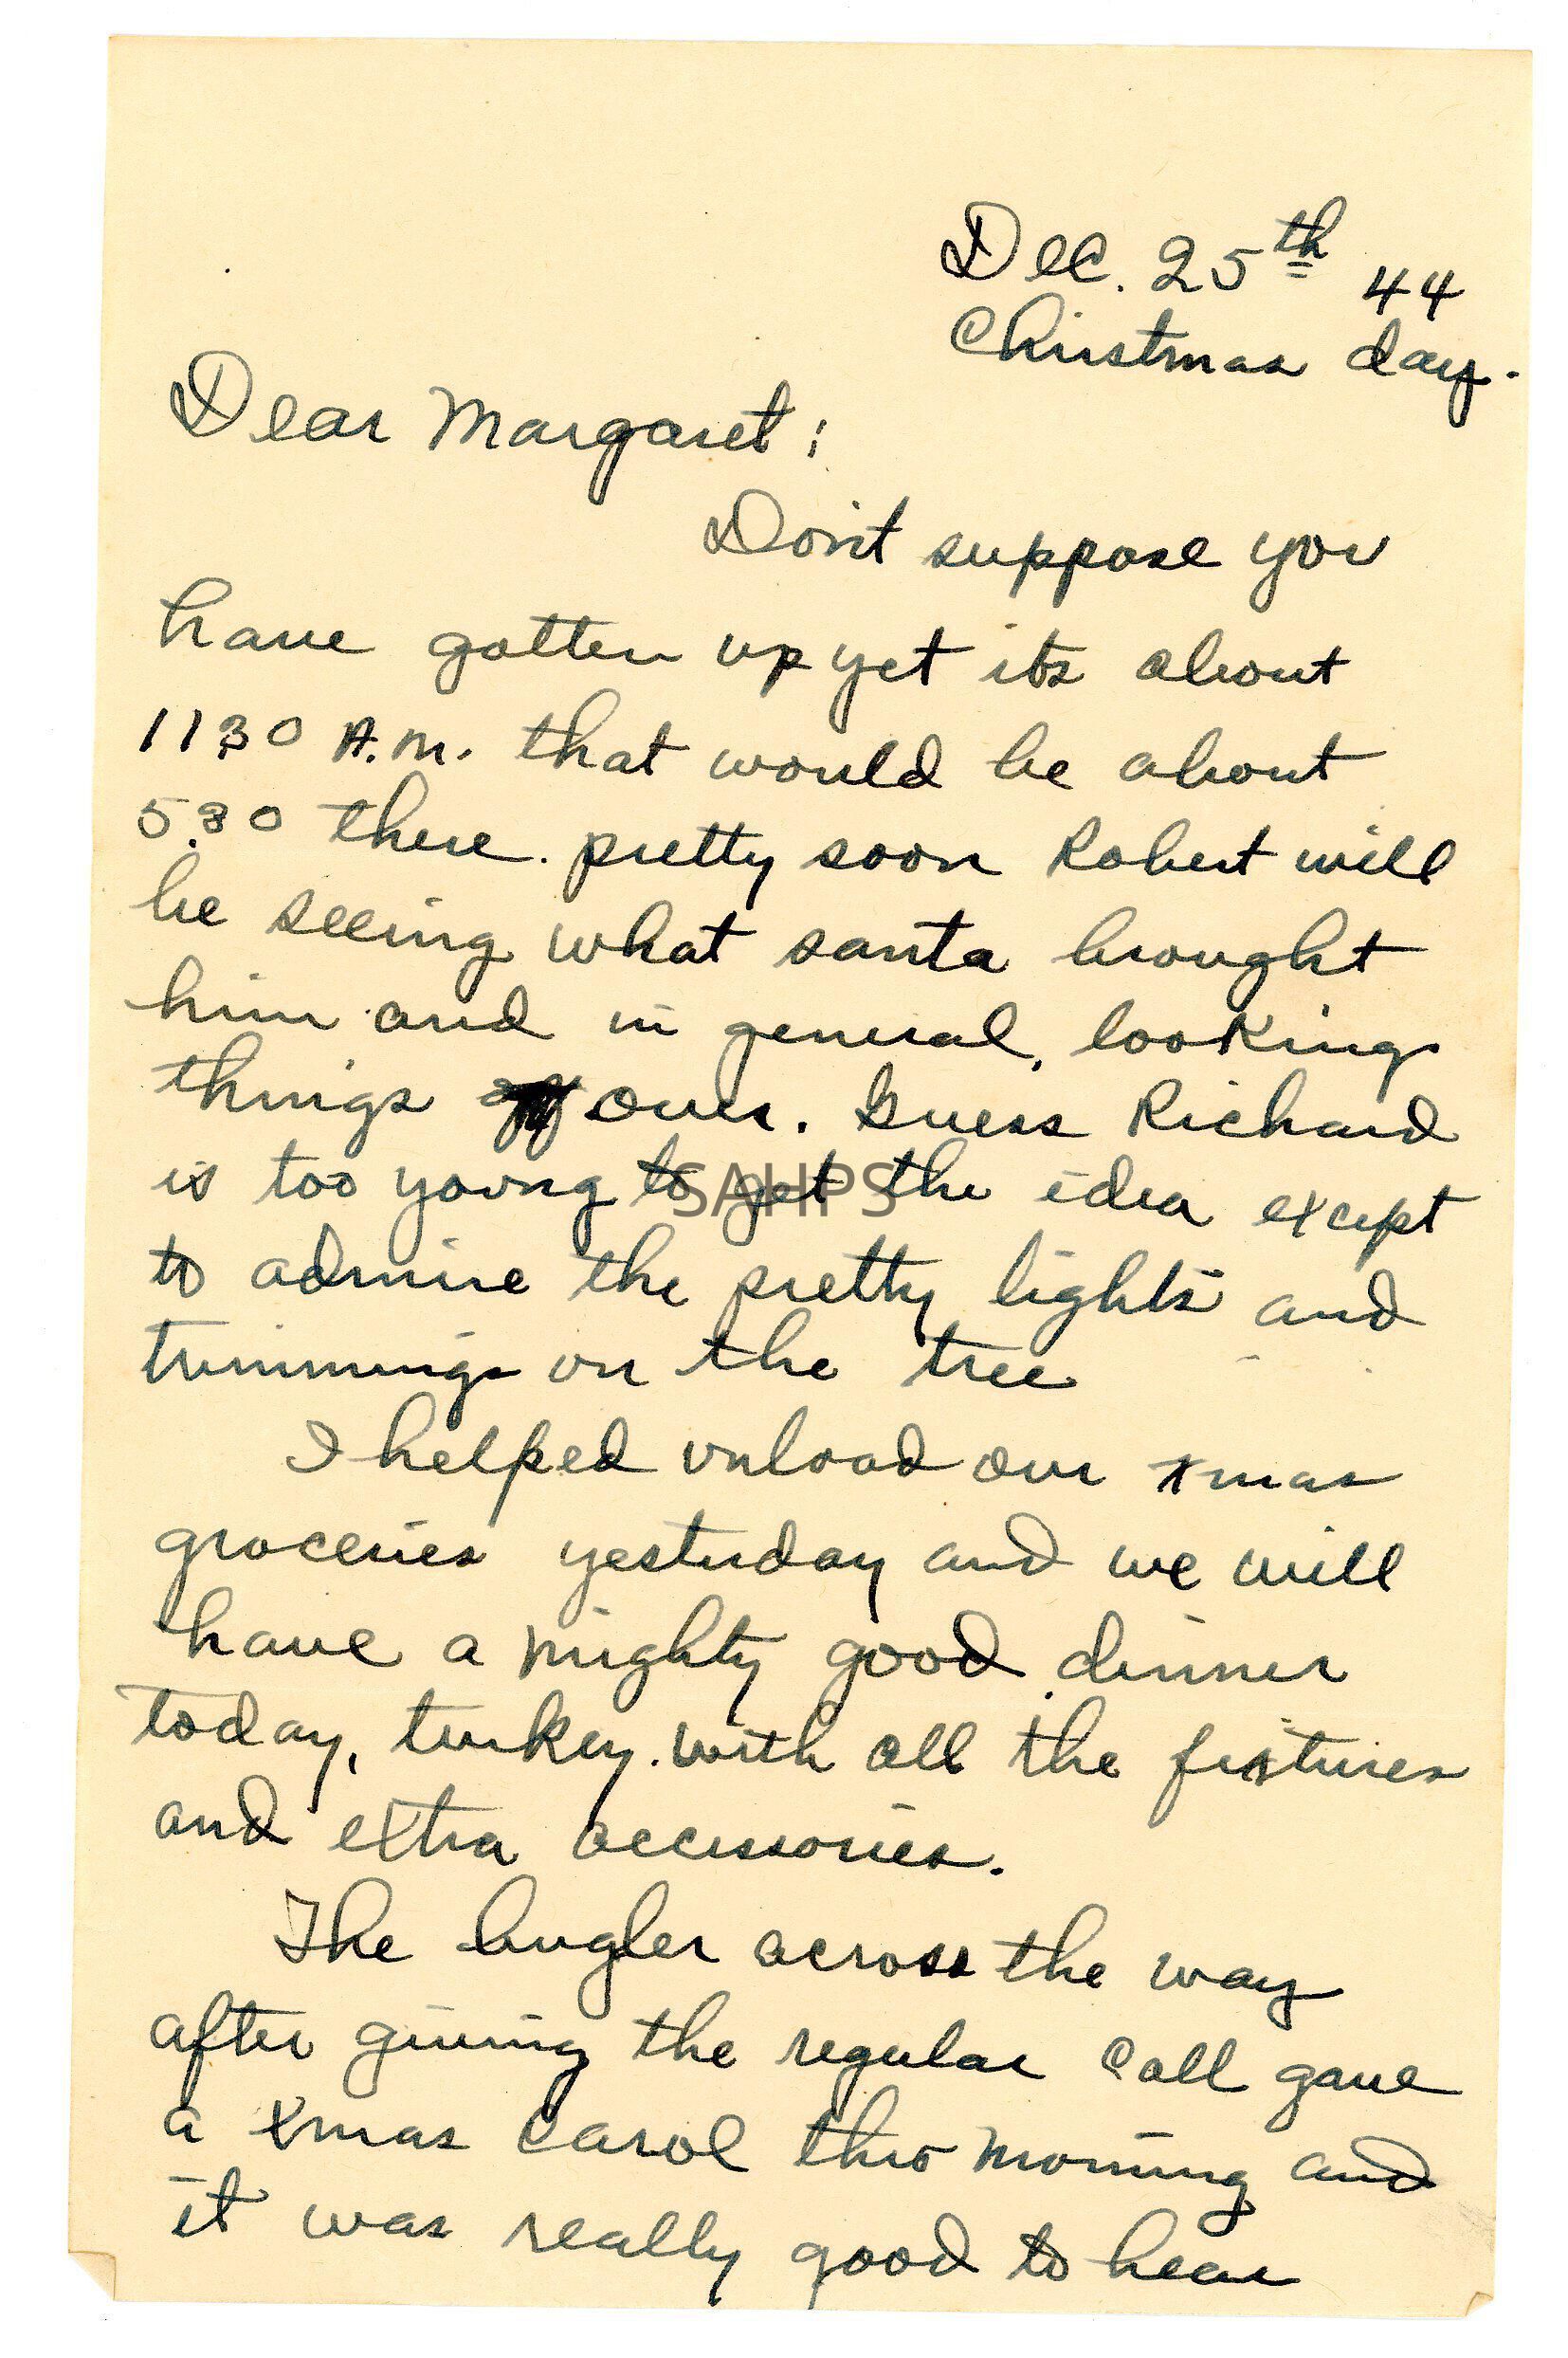 Dec. 25th 44
Christmas day.
Dear Margaret:
Don't suppose you
have gotten up yet its about
1130 A.M. that would be about
5.30 there. pretty soon Robert will
be seeing what santa brought
him and in general, looking
things over. Guess Richard
is too young to get the idea except
SAHPS
to admire the pretty lights and
trimmings on the tree
I helped unload our xmas
groceries yesterday and we will
have a mighty good dinner
today, turkey. with all the fixtures
and extra accessories.
The bugler across the way
after giving the regular call gave
a Xmas carol this morning and
it was really good to hear